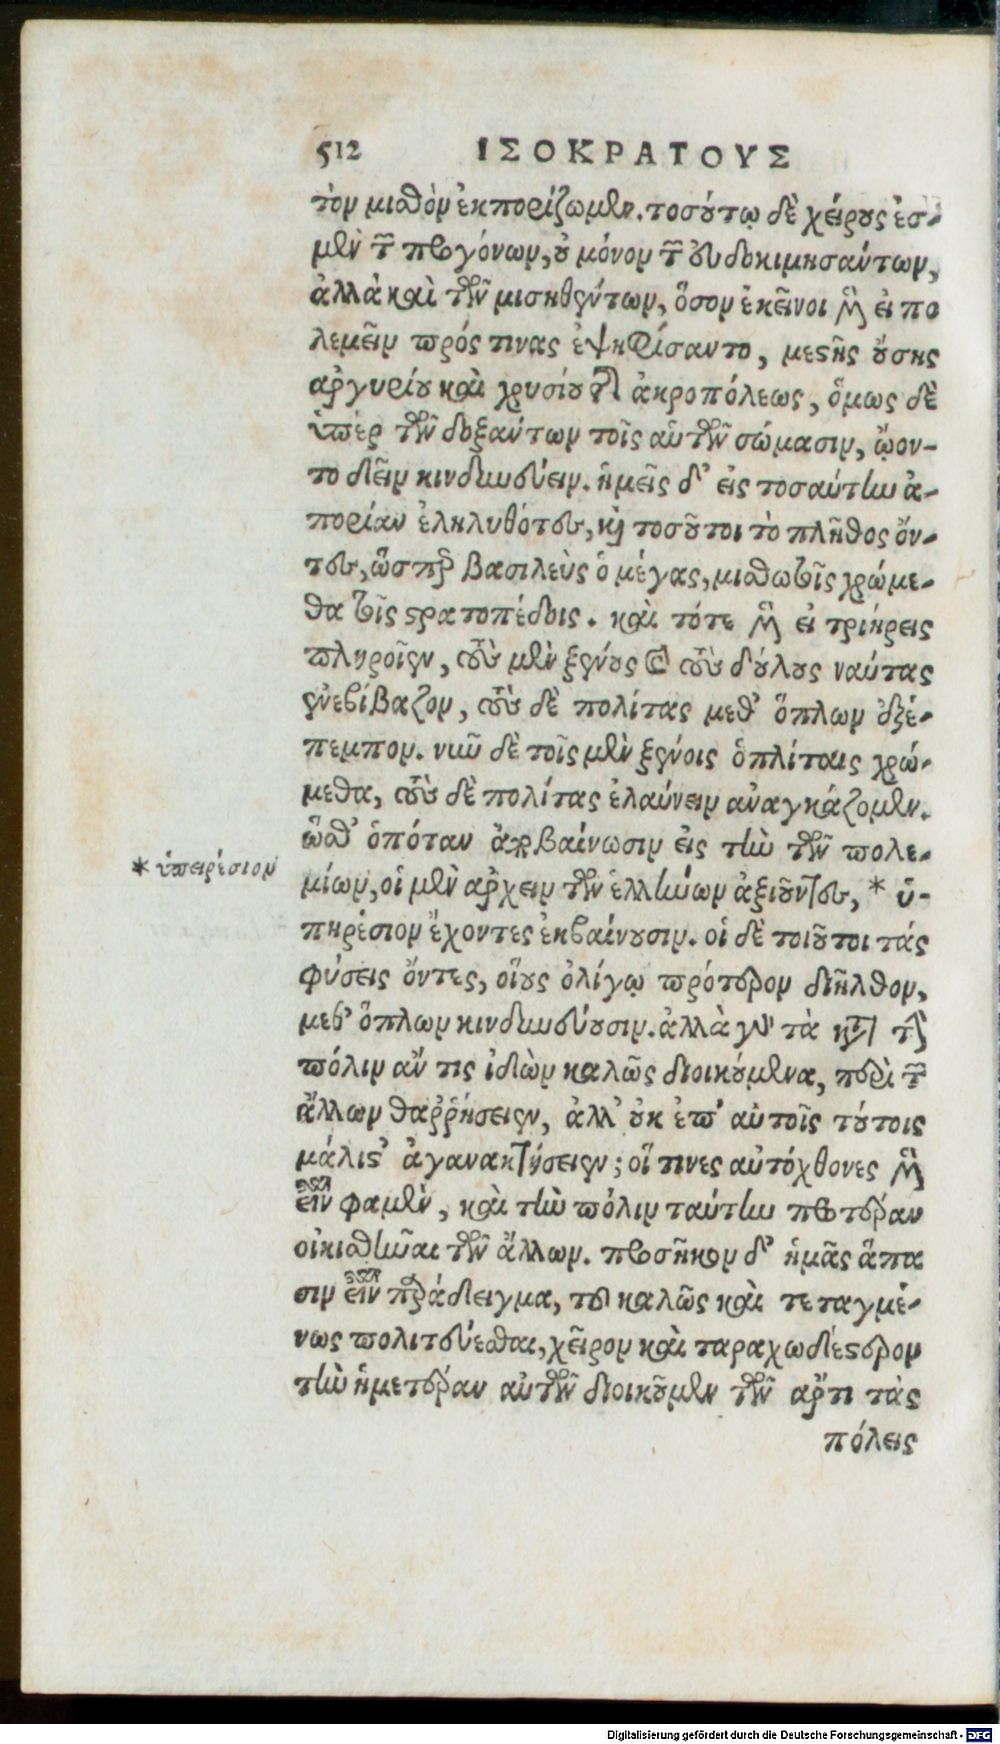 512 ΙΣΟΚΡΑΤΟΥΣ
τὸν μισθὸν ἐκπορίζωμεν. τοσούτῳ δὲ χείρους ἐσ-
μὲν τῶν προγόνων, οὐ μόνον τῶν εὐδοκιμησάντων,
ἀλλὰ καὶ τῶν μισηθέντων, ὅσον ἐκεῖνοι μὲν εἰ πο
λεμεῖν πρός τινας ἐψηφίσαντο, μεστῆς οὔσης
ἀργυρίου καὶ χρυσίου τῆς ἀκροπόλεως, ὅμως δὲ
ὑπὲρ τῶν δοξάντων τοῖς αὑτῶν σώμασιν, ᾤον-
το δεῖν κινδυνεύειν. ἡμεῖς δ' εἰς τοσαύτην ἀ-
πορίαν ἐληλυθότες, καὶ τοσοῦτοι τὸ πλῆθος ὄν-
τες, ὥσπερ βασιλεὺς ὁ μέγας, μισθωτοῖς χρώμε-
θα τοῖς στρατοπέδοις. καὶ τότε μὲν εἰ τριήρεις
πληροῖεν, τοὺς μὲν ξένους καὶ τοὺς δούλους ναύτας
ἐνεβίβαζον, τοὺς δὲ πολίτας μεθ' ὅπλων ἐξέ-
πεμπον. νῦν δὲ τοῖς μὲν ξένοις ὁπλίταις χρώ-
μεθα, τοὺς δὲ πολίτας ἐλαύνειν ἀναγκάζομεν.
ὥσθ' ὁπόταν ἀποβαίνωσιν εἰς τὴν τῶν πολε-
* ὑπειρέσιον
μίων, οἱ μὲν ἄρχειν τῶν ἑλλήνων ἀξιοῦντες, * ὑ-
πηρέσιον ἔχοντες ἐκβαίνουσιν. οἱ δὲ τοιοῦτοι τὰς
φύσεις ὄντες, οἵους ὀλίγῳ πρότερον διῆλθον,
μεθ' ὅπλων κινδυνεύουσιν. ἀλλὰ γὰρ τὰ κατὰ τὴν
πόλιν ἄν τις ἰδὼν καλῶς διοικούμενα, περὶ τῶν
ἄλλων θαῤῥήσειεν, ἀλλ' οὐκ ἐπ' αὐτοῖς τούτοις
μάλιστ' ἀγανακτήσειεν; οἵ τινες αὐτόχθονες μὲν
εἶναι φαμὲν, καὶ τὴν πόλιν ταύτην προτέραν
οἰκισθῆναι τῶν ἄλλων. προσῆκον δ' ἡμᾶς ἅπα
σιν εἶναι παράδειγμα, τοῦ καλῶς καὶ τεταγμέ-
νως πολιτεύεσθαι, χεῖρον καὶ ταραχωδέστερον
τὴν ἡμετέραν αὐτῶν διοικοῦμεν τῶν ἄρτι τὰς
πόλεις
Digitalisierung gefördert durch die Deutsche Forschungsgemeinschaft - DFG